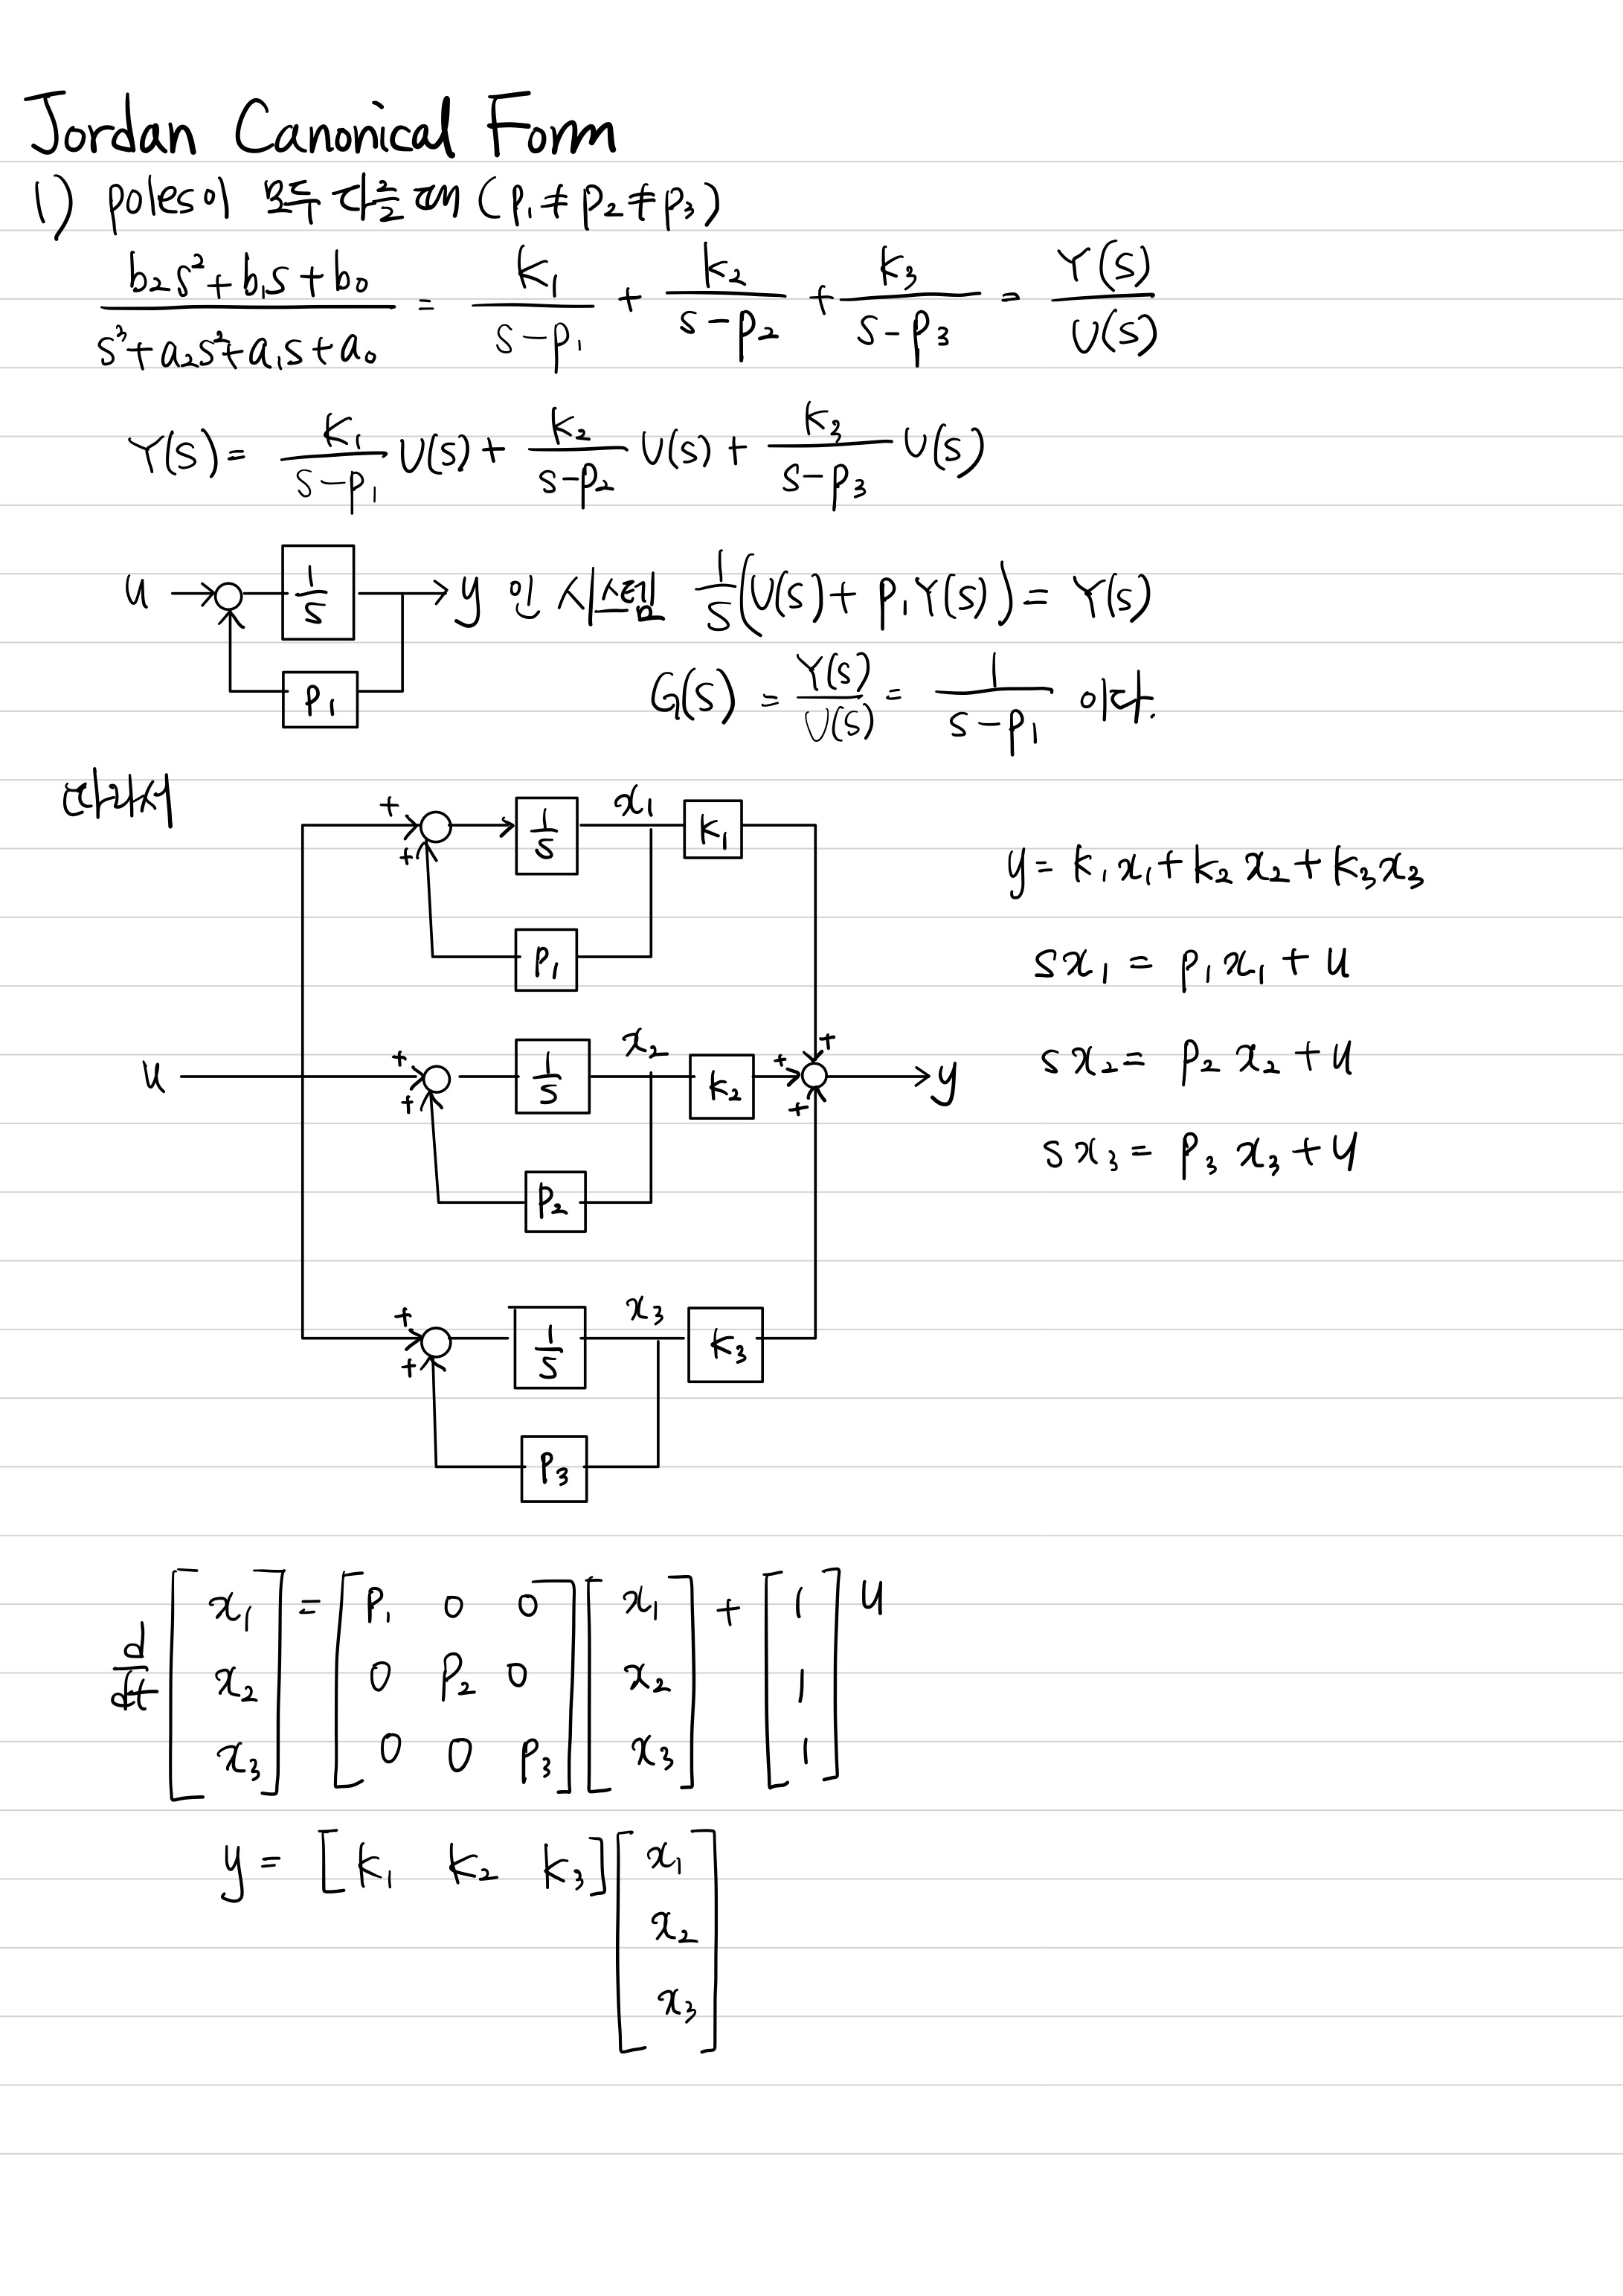 Jordan Canonical Form
1) poles이 모두 다를 때 (p₁≠p₂≠p₃)
(b₂s²+b₁s+b₀)/(s³+a₂s²+a₁s+a₀) = K₁/(s-p₁) + k₂/(s-p₂) + k₃/(s-p₃) = Y(s)/U(s)
Y(s) = K₁/(s-p₁) U(s) + k₂/(s-p₂) U(s) + k₃/(s-p₃) U(s)
u 1/s y 인 시스템 1/s(U(s)+p₁Y(s)) = Y(s)
p₁ G(s) = Y(s)/U(s) = 1/(s-p₁) 이다.
따라서
+ + 1/s x₁ k₁
p₁
u + + 1/s x₂ k₂ + + + y
p₂
+ + 1/s x₃ k₃
p₃
y = k₁x₁+k₂x₂+k₃x₃
sx₁ = p₁x₁+u
sx₂ = p₂x₂+u
sx₃ = p₃x₃+u
d/dt [x₁ x₂ x₃] = [p₁ 0 0 0 p₂ 0 0 0 p₃] [x₁ x₂ x₃] + [1 1 1] u
y = [k₁ k₂ k₃] [x₁ x₂ x₃]